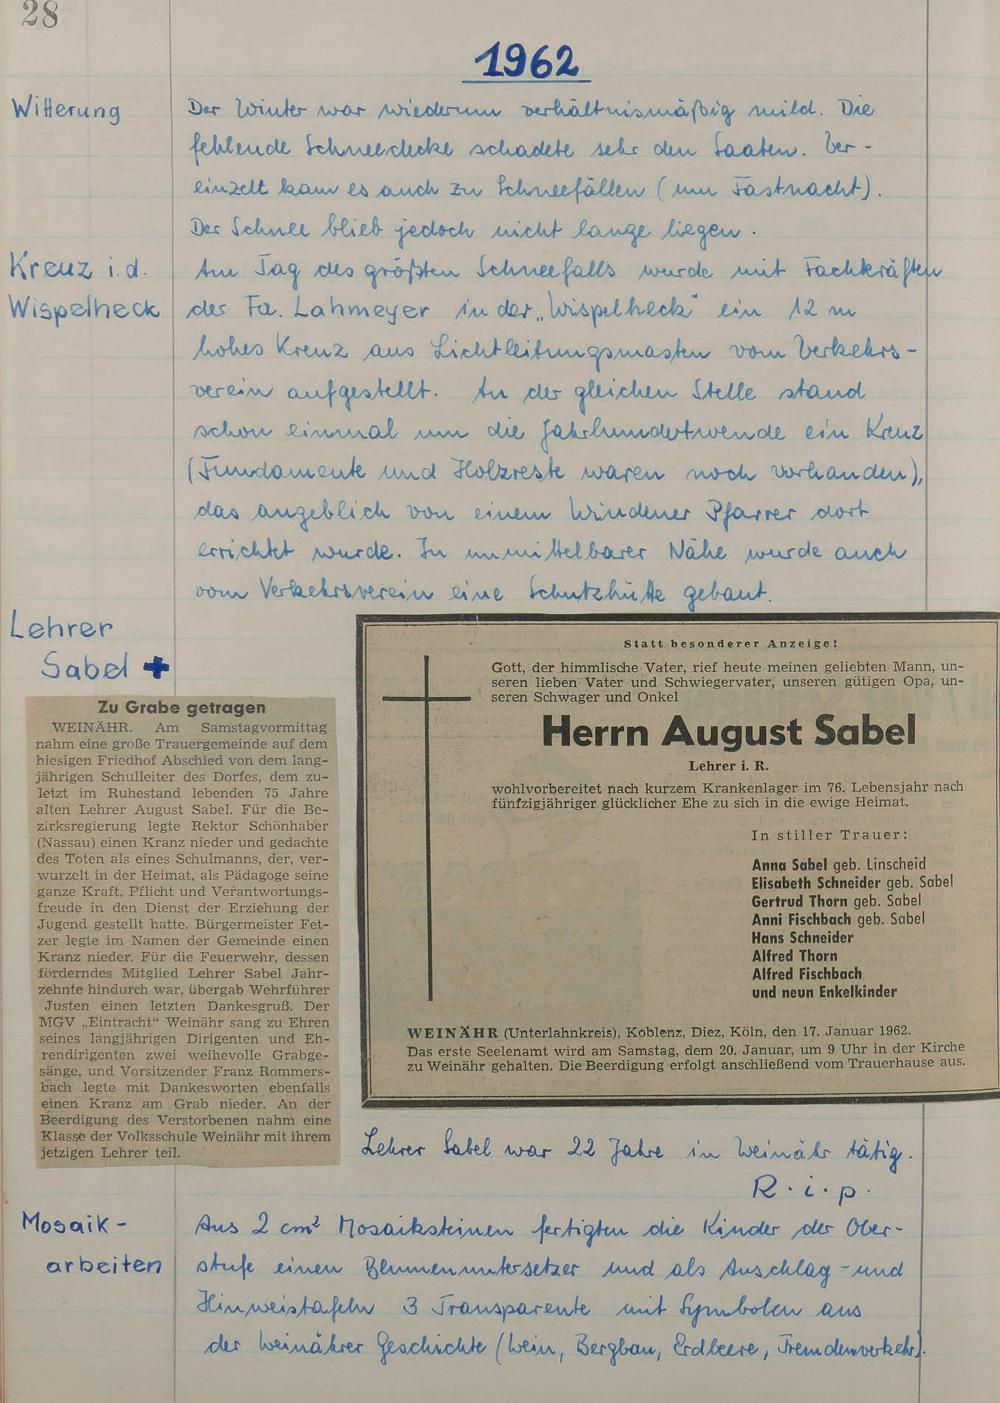 28
1962
Witterung
Der Winter war wiederum verhältnismäßig mild. Die
fehlende Schneedecke schadete sehr den Saaten. Ver-
einzelt kam es auch zu Schneefällen (um Fastnacht).
Der Schnee blieb jedoch nicht lange liegen.
Kreuz i.d.
Wispelheck
Am Tag des größten Schneefalls wurde mit Fachkräften
der Fa. Lahmeyer in der „Wispelheck" ein 12 m
hohes Kreuz aus Lichtleitungsmasten vom Verkehrs-
verein aufgestellt. An der gleichen Stelle stand
schon einmal um die Jahrhundertwende ein Kreuz
(Fundamente und Holzreste waren noch vorhanden),
das angeblich von einem Windener Pfarrer dort
errichtet wurde. In unmittelbarer Nähe wurde auch
vom Verkehrsverein eine Schutzhütte gebaut.
Lehrer
Sabel +
Zu Grabe getragen
WEINÄHR. Am Samstagvormittag
nahm eine große Trauergemeinde auf dem
hiesigen Friedhof Abschied von dem lang-
jährigen Schulleiter des Dorfes, dem zu-
letzt im Ruhestand lebenden 75 Jahre
alten Lehrer August Sabel. Für die Be-
zirksregierung legte Rektor Schönhaber
(Nassau) einen Kranz nieder und gedachte
des Toten als eines Schulmanns, der, ver-
wurzelt in der Heimat, als Pädagoge seine
ganze Kraft, Pflicht und Verantwortungs-
freude in den Dienst der Erziehung der
Jugend gestellt hatte. Bürgermeister Fet-
zer legte im Namen der Gemeinde einen
Kranz nieder. Für die Feuerwehr, dessen
förderndes Mitglied Lehrer Sabel Jahr-
zehnte hindurch war, übergab Wehrführer
Justen einen letzten Dankesgruß. Der
MGV „Eintracht" Weinähr sang zu Ehren
seines langjährigen Dirigenten und Eh-
rendirigenten zwei weihevolle Grabge-
sänge, und Vorsitzender Franz Rommers-
bach legte mit Dankesworten ebenfalls
einen Kranz am Grab nieder. An der
Beerdigung des Verstorbenen nahm eine
Klasse der Volksschule Weinähr mit ihrem
jetzigen Lehrer teil.
Statt besonderer Anzeige!
Gott, der himmlische Vater, rief heute meinen geliebten Mann, un-
seren lieben Vater und Schwiegervater, unseren gütigen Opa, un-
seren Schwager und Onkel
Herrn August Sabel
Lehrer i. R.
wohlvorbereitet nach kurzem Krankenlager im 76. Lebensjahr nach
fünfzigjähriger glücklicher Ehe zu sich in die ewige Heimat.
In stiller Trauer:
Anna Sabel geb. Linscheid
Elisabeth Schneider geb. Sabel
Gertrud Thorn geb. Sabel
Anni Fischbach geb. Sabel
Hans Schneider
Alfred Thorn
Alfred Fischbach
und neun Enkelkinder
WEINÄHR (Unterlahnkreis), Koblenz, Diez, Köln, den 17. Januar 1962.
Das erste Seelenamt wird am Samstag, dem 20. Januar, um 9 Uhr in der Kirche
zu Weinähr gehalten. Die Beerdigung erfolgt anschließend vom Trauerhause aus.
Lehrer Sabel war 22 Jahre in Weinähr tätig.
R.i.p.
Mosaik-
arbeiten
Aus 2 cm² Mosaiksteinen fertigten die Kinder der Ober-
stufe einen Blumenuntersetzer und als Anschlag- und
Hinweistafeln 3 Transparente mit Symbolen aus
der Weinährer Geschichte (Wein, Bergbau, Erdbeere, Fremdenverkehr).